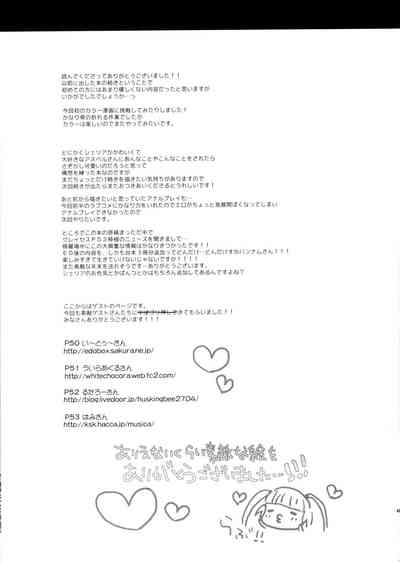 読んでくださってありがとうございました！！
以前に出した本の続きということで
初めての方にはあまり優しくない内容だったと思いますが
いかがでしたでしょうか…っ
今回初のカラー漫画に挑戦してみたりしました！
かなり骨の折れる作業でしたが
カラーは楽しいのでまたやってみたいです。
とにかくシェリアがかわいくて
大好きなアスベルさんにあんなことやこんなことをされたら
さぞかし可愛いのだろうと思って
構想を練った本なのですが
まだちょっとだけ続きを描きたい気持ちがありますので
次回続きが出たらまたおつきあいくださるとうれしいです！
あと前から描きたいと思っていたアナルプレイも…
今回前半のラブコメにかなり力をいれたのでエロがちょっと急展開ぽくなってしまい
アナルプレイできなかったので
次回やりたいです。
ところでこの本の原稿まっただ中で
グレイセスＰＳ３移植のニュースを聞きまして…
修羅場中にこの大興奮な情報はかなりきつかったです！！
ＥＤ後の内容を、しかも台本３冊分追加ってどんだけ…どんだけすかバンナムさん！！
楽しみすぎて生きていけないじゃないですか！！！！
また素敵な年末を送れそうです…ありがとうございます！
シェリアのお色気とかぱんつとかはもちろん追加してあるんですよね？
ここからはゲストのページです。
今回も素敵ゲストさんたちに
きてもらいました！！
みなさんありがとうございます！！
P50 い～とぅ～さん
http://edobox.sakura.ne.jp/
P51 ういらあくるさん
http://whitechocora.web.fc2.com/
P52 るかろーさん
http://blog.livedoor.jp/huskingbee2704/
P53 はみさん
http://ksk.hacca.jp/musica/
ありえないくらい素敵な絵を
ありがとうございましたーっ!!!
らぶ!!